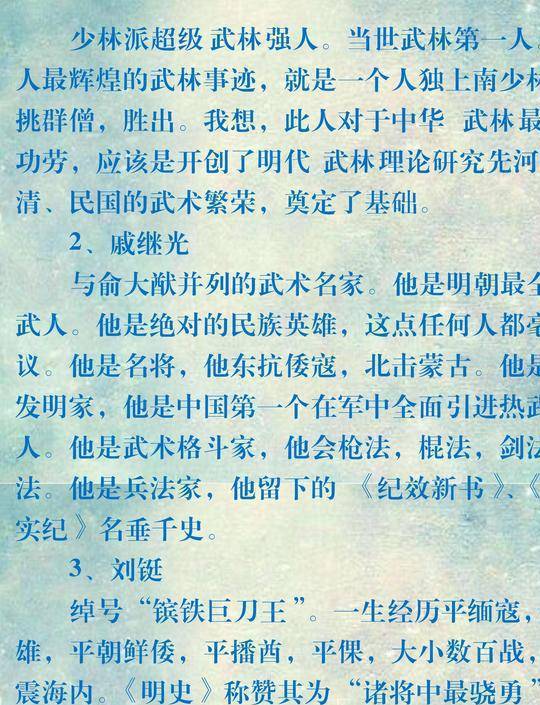 少林派超级 武林强人。当世武林第一人。
人最辉煌的武林事迹，就是一个人独上南少林
挑群僧，胜出。我想，此人对于中华 武林最
功劳，应该是开创了明代 武林理论研究先河
清、民国的武术繁荣，奠定了基础。
2、戚继光
与俞大猷并列的武术名家。他是明朝最全
武人。他是绝对的民族英雄，这点任何人都毫
议。他是名将，他东抗倭寇，北击蒙古。他是
发明家，他是中国第一个在军中全面引进热武
人。他是武术格斗家，他会枪法，棍法，剑法
法。他是兵法家，他留下的 《纪效新书》、《
实纪》名垂千史。
3、刘铤
绰号“镔铁巨刀王”。一生经历平缅寇，
雄，平朝鲜倭，平播酋，平倮，大小数百战，
震海内。《明史》称赞其为“诸将中最骁勇”